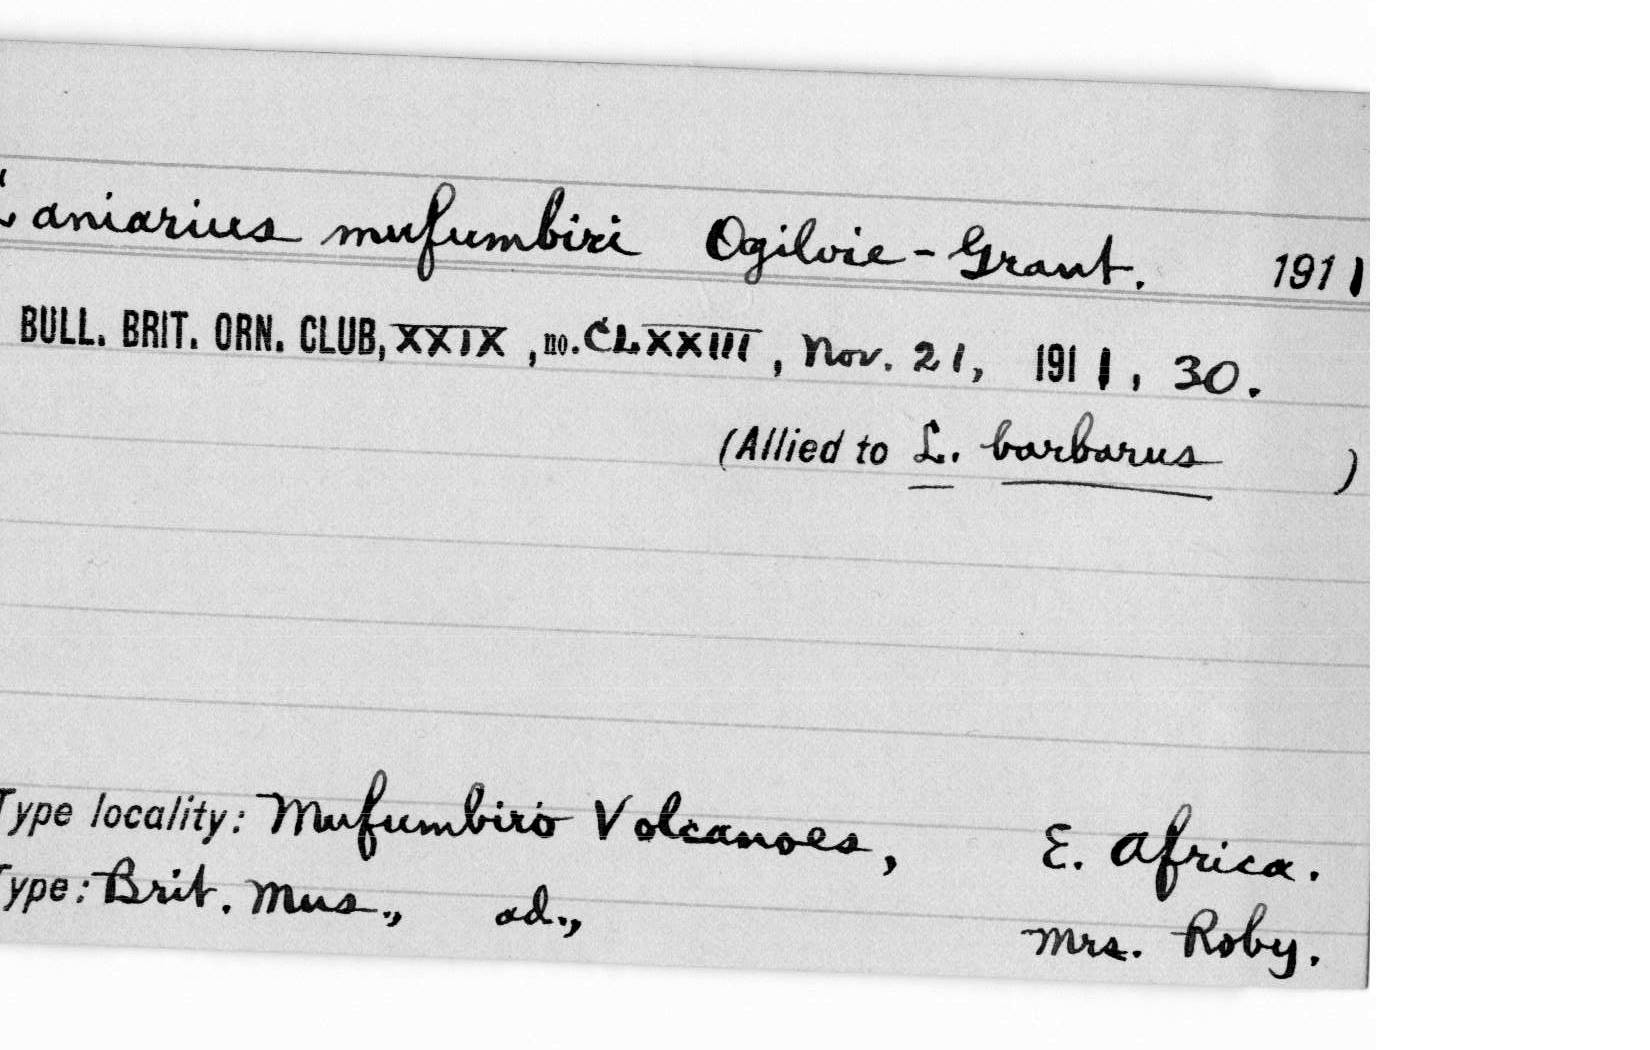 Laniarius mufumbiri Ogilvie-Grant. 1911
BULL. BRIT. ORN. CLUB, XXIX, no. CLXXIII, Nov. 21, 1911, 30.
(Allied to L. barbarus )
Type locality: Mufumbiro Volcanoes, E. Africa.
Type: Brit. Mus., ad., Mrs. Roby.